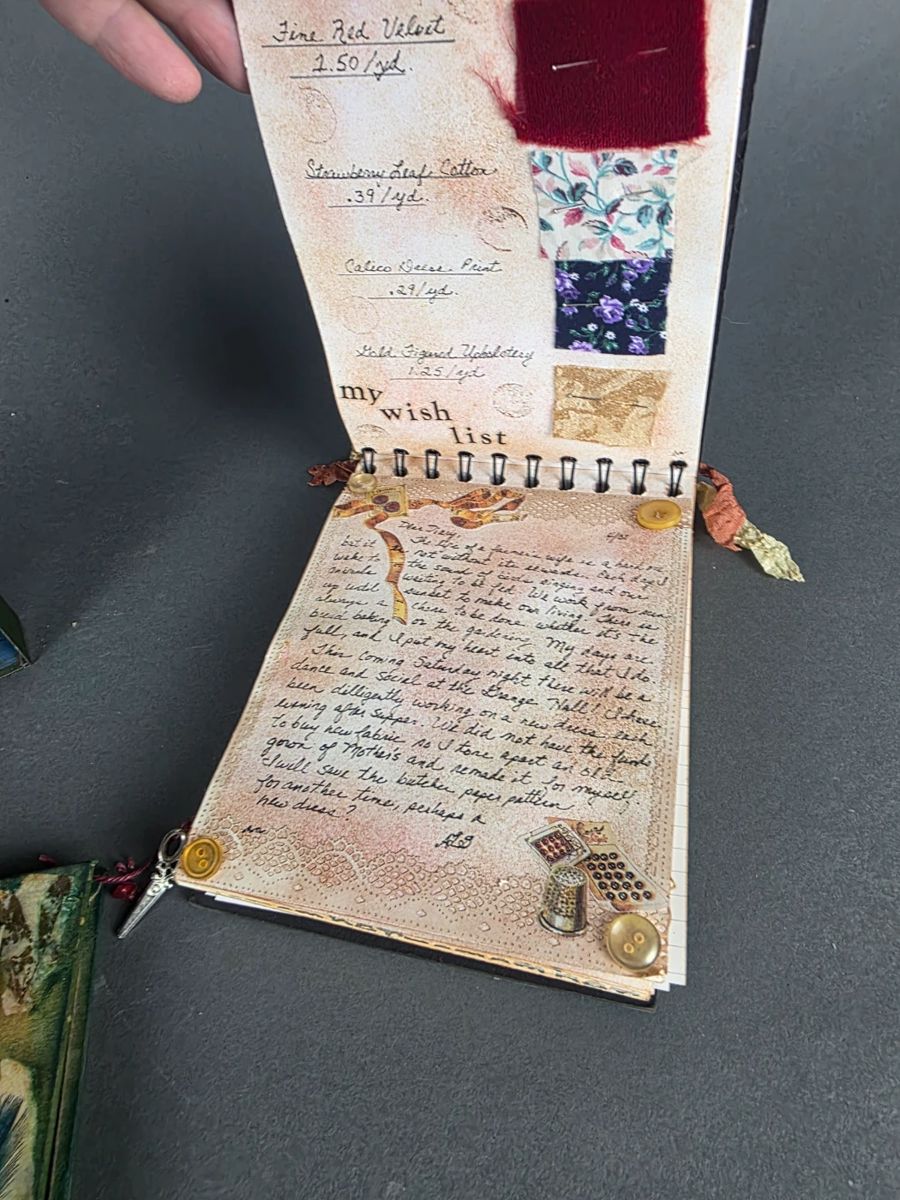 Fine Red Velvet
2.50/yd.
Strawberry Leaf Cotton
.39/yd.
Calico Dress Print
.29/yd.
Gold Figured Upholstery
1.25/yd
my
wish
list
Dear Diary,
The life of a farmer's wife is a hard one
but it is not without its rewards. Each day I
wake to the sound of birds singing and our
animals waiting to be fed. We work from sun
up until sunset to make our living. There is
always a chore to be done whether it's the
bread baking or the gardening. My days are
full, and I put my heart into all that I do.
This coming Saturday night there will be a
dance and social at the Grange Hall! I have
been dilligently working on a new dress each
evening after supper. We did not have the funds
to buy new fabric so I tore apart an old
gown of Mother's and remade it for myself.
I will save the butcher paper pattern
for another time, perhaps a
new dress?